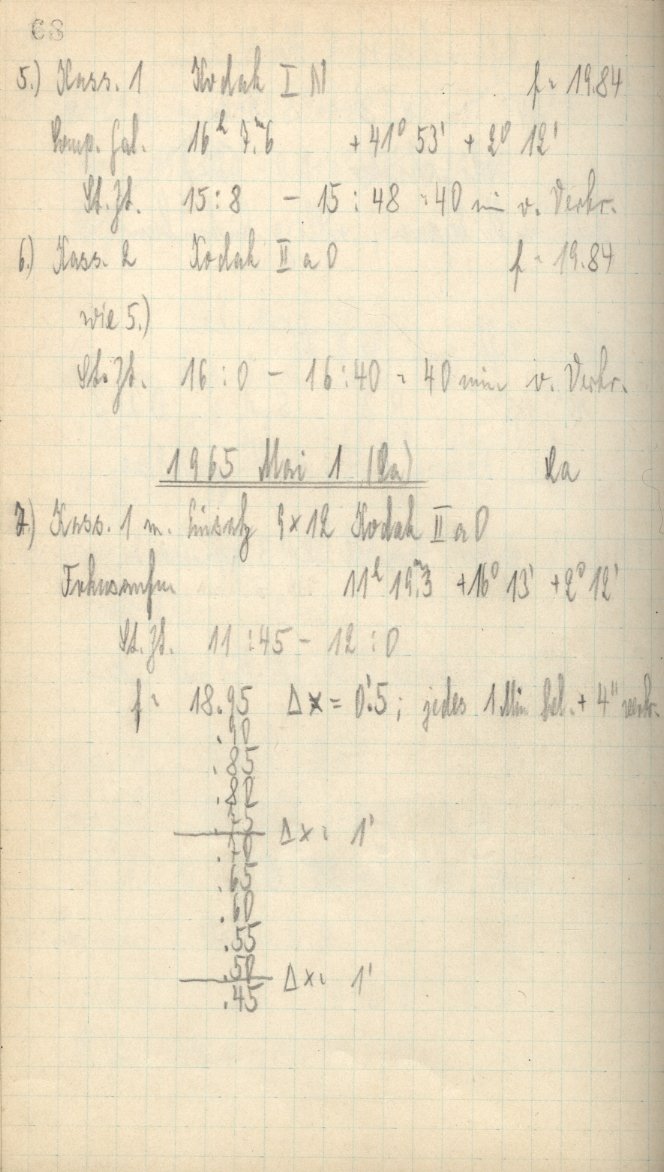 68
5.) Kass. 1 Kodak I N f = 19.84
Comp. Gal. 16h 7m.6 +41° 53' + 2° 12'
St.Zt. 15:8 - 15:48 = 40 min v. Verkr.
6.) Kass. 2 Kodak II a O f = 19.84
wie 5.)
St.Zt. 16:0 - 16:40 = 40 min v. Verkr.
1965 Mai 1 (Sa) La
7.) Kass. 1 m. Einsatz 9×12 Kodak II a O
Fokusaufn 11h 19m.3 +16° 13' +2° 12'
St.Zt. 11:45 - 12:0
f = 18.95 Δx = 0'.5; jedes 1 Min Bel. + 4"
.90
.85
.80
.75
Δx = 1'
.70
.65
.60
.55
.50
Δx = 1'
.45